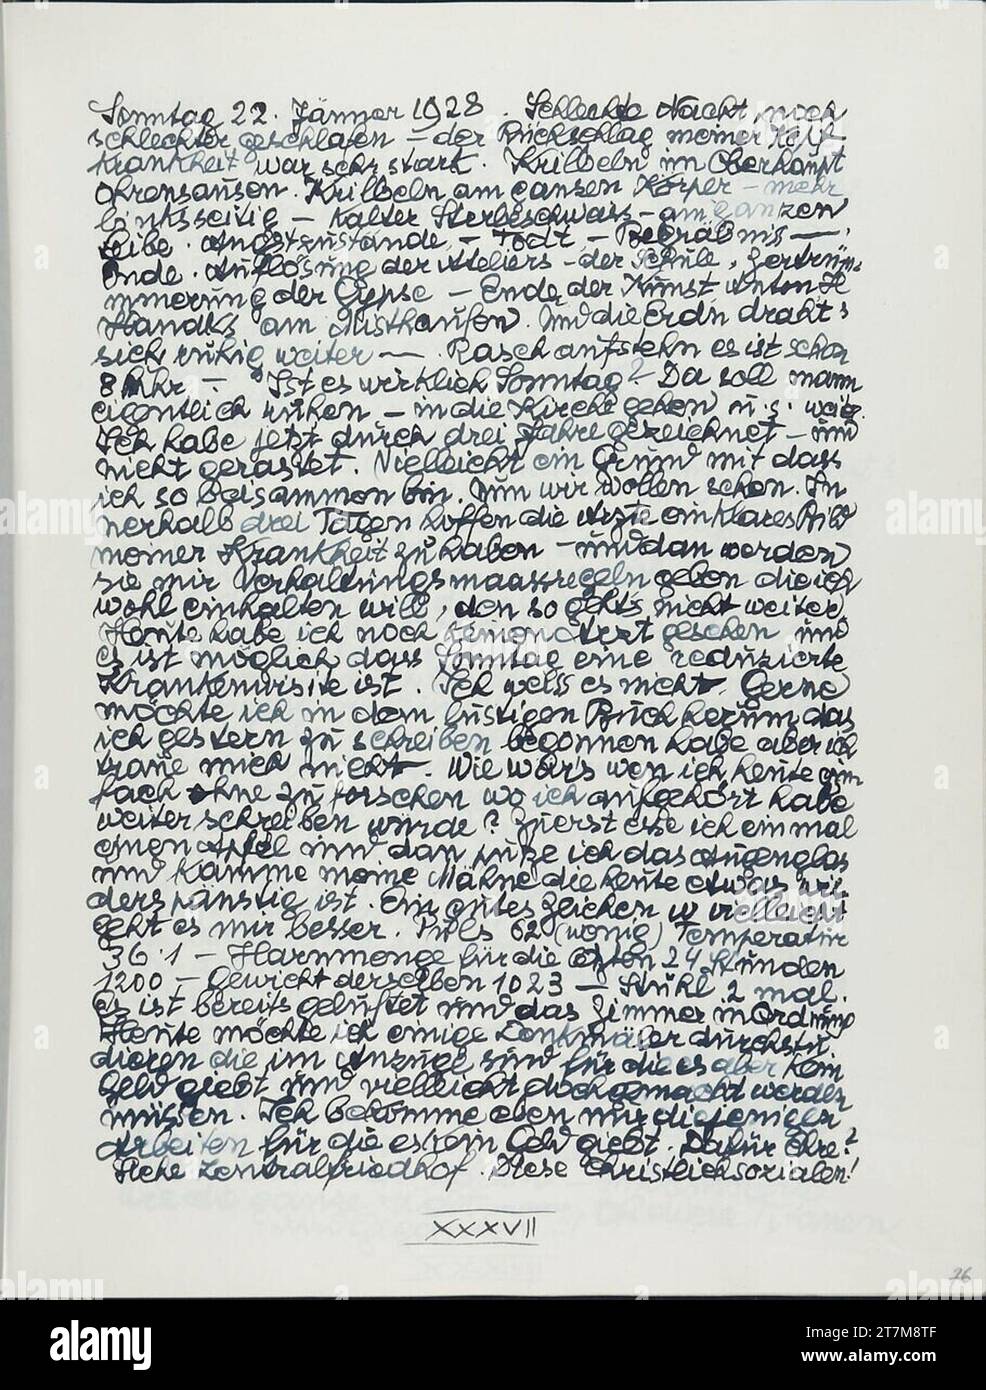 Sonntag 22. Jänner 1928. Schlechte Nacht, noch
schlechter geschlafen – der Rückschlag meiner
Krankheit war sehr stark. Kribbeln im Oberhaupt
Ohrensausen. Kribbeln am ganzen Körper – mehr
linksseitig – kalter Sterbeschweiss – am ganzen
Leibe. Angstzustände – Todt – Begräbnis —.
Ende. Auflösung der Ateliers – der Schule, Zertrüm=
mmerung der Gypse – Ende der Kunst Anton H
Hanaks am Misthaufen. Und die Erdn draht s
sich ruhig weiter —. Rasch aufstehn es ist schon
8 Uhr –. Ist es wirklich Sonntag? Da soll mann
eigentlich ruhen – in die Kirche gehen u.s. weiter
Ich habe jetzt durch drei Jahre gezeichnet – und
nicht gerastet. Vielleicht ein Grund mit dass
ich so beisammen bin. Nun wir wollen sehen. In
nerhalb drei Tagen hoffen die Ärzte ein klares Bild
meiner Krankheit zu haben – und dan werden
sie mir Verhaltungsmaassregeln geben die ich
wohl einhalten will, den so gehts nicht weiter
Heute habe ich noch keinen Arzt gesehen und
es ist möglich dass Sonntag eine reduzierte
Krankenvisite ist. Ich weiss es nicht. Gerne
möchte ich in dem lustigen Buch herum das
ich gestern zu schreiben begonnen habe aber ich
traue mich nicht. Wie wärs wen ich heute ein
fach ohne zu forschen wo ich aufgehört habe
weiter schreiben würde? Zuerst esse ich einmal
einen Apfel und dan putze ich das Augenglas
und kämme meine Mähne die heute etwas wi=
derspänstig ist. Ein gutes Zeichen vielleicht
geht es mir besser. Puls 62 (wenig) Temperatur
36·1 – Harnmenge für die letzten 24 Stunden
1200 – Gewicht derselben 1023 – Stuhl 2 mal.
Es ist bereits gelüftet und das Zimmer in Ordnung
Heute möchte ich einige Denkmäler durchstu
dieren die im Anzuge sind für die es aber kein
Geld giebt und vielleicht doch gemacht werden
müssen. Ich bekomme eben nur diejenigen
Arbeiten für die es kein Geld giebt. Dafür Ehre?
Siehe Zentralfriedhof. Diese Christlichsozialen!
XXXVII
76
alamy
Image ID: 2T7M8TF
www.alamy.com